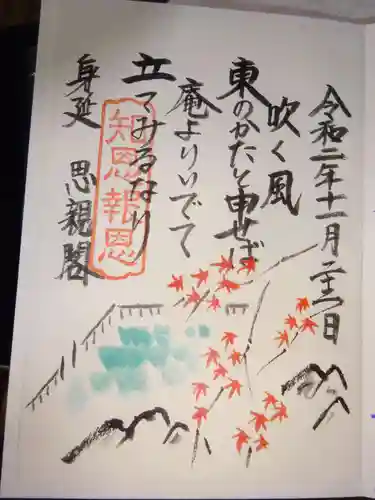 令和二年十一月二十六日
吹く風
東のかたと申せば
庵よりいでて
立てみるなり
知恩報恩
身延 思親閣